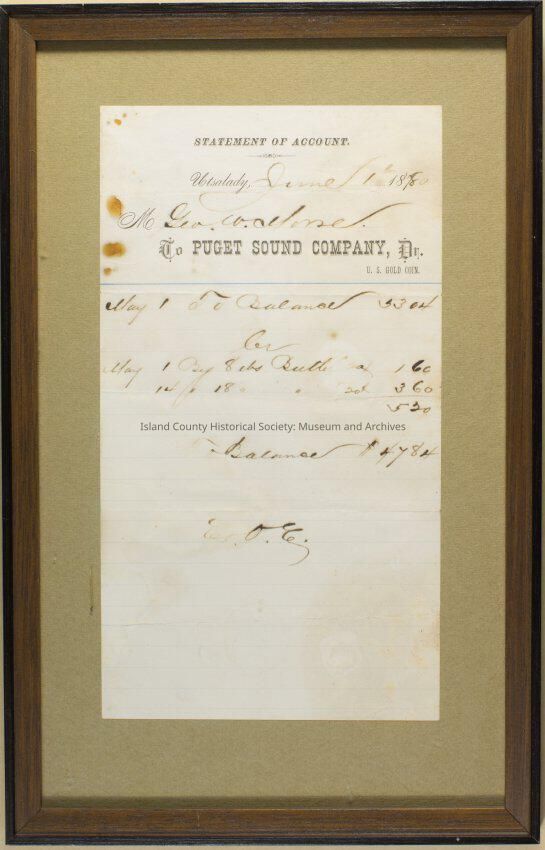 STATEMENT OF ACCOUNT.
Utsalady, June 1st 1880
M Geo. W. Morse.
To PUGET SOUND COMPANY, Dr.
U. S. GOLD COIN.
May 1 To Balance 53 04
Cr
May 1 By 8 lbs Butter 20 1 60
14 " 18 " " 20 3 60
5 20
Island County Historical Society: Museum and Archives
To Balance $ 47 84
E. O. E.